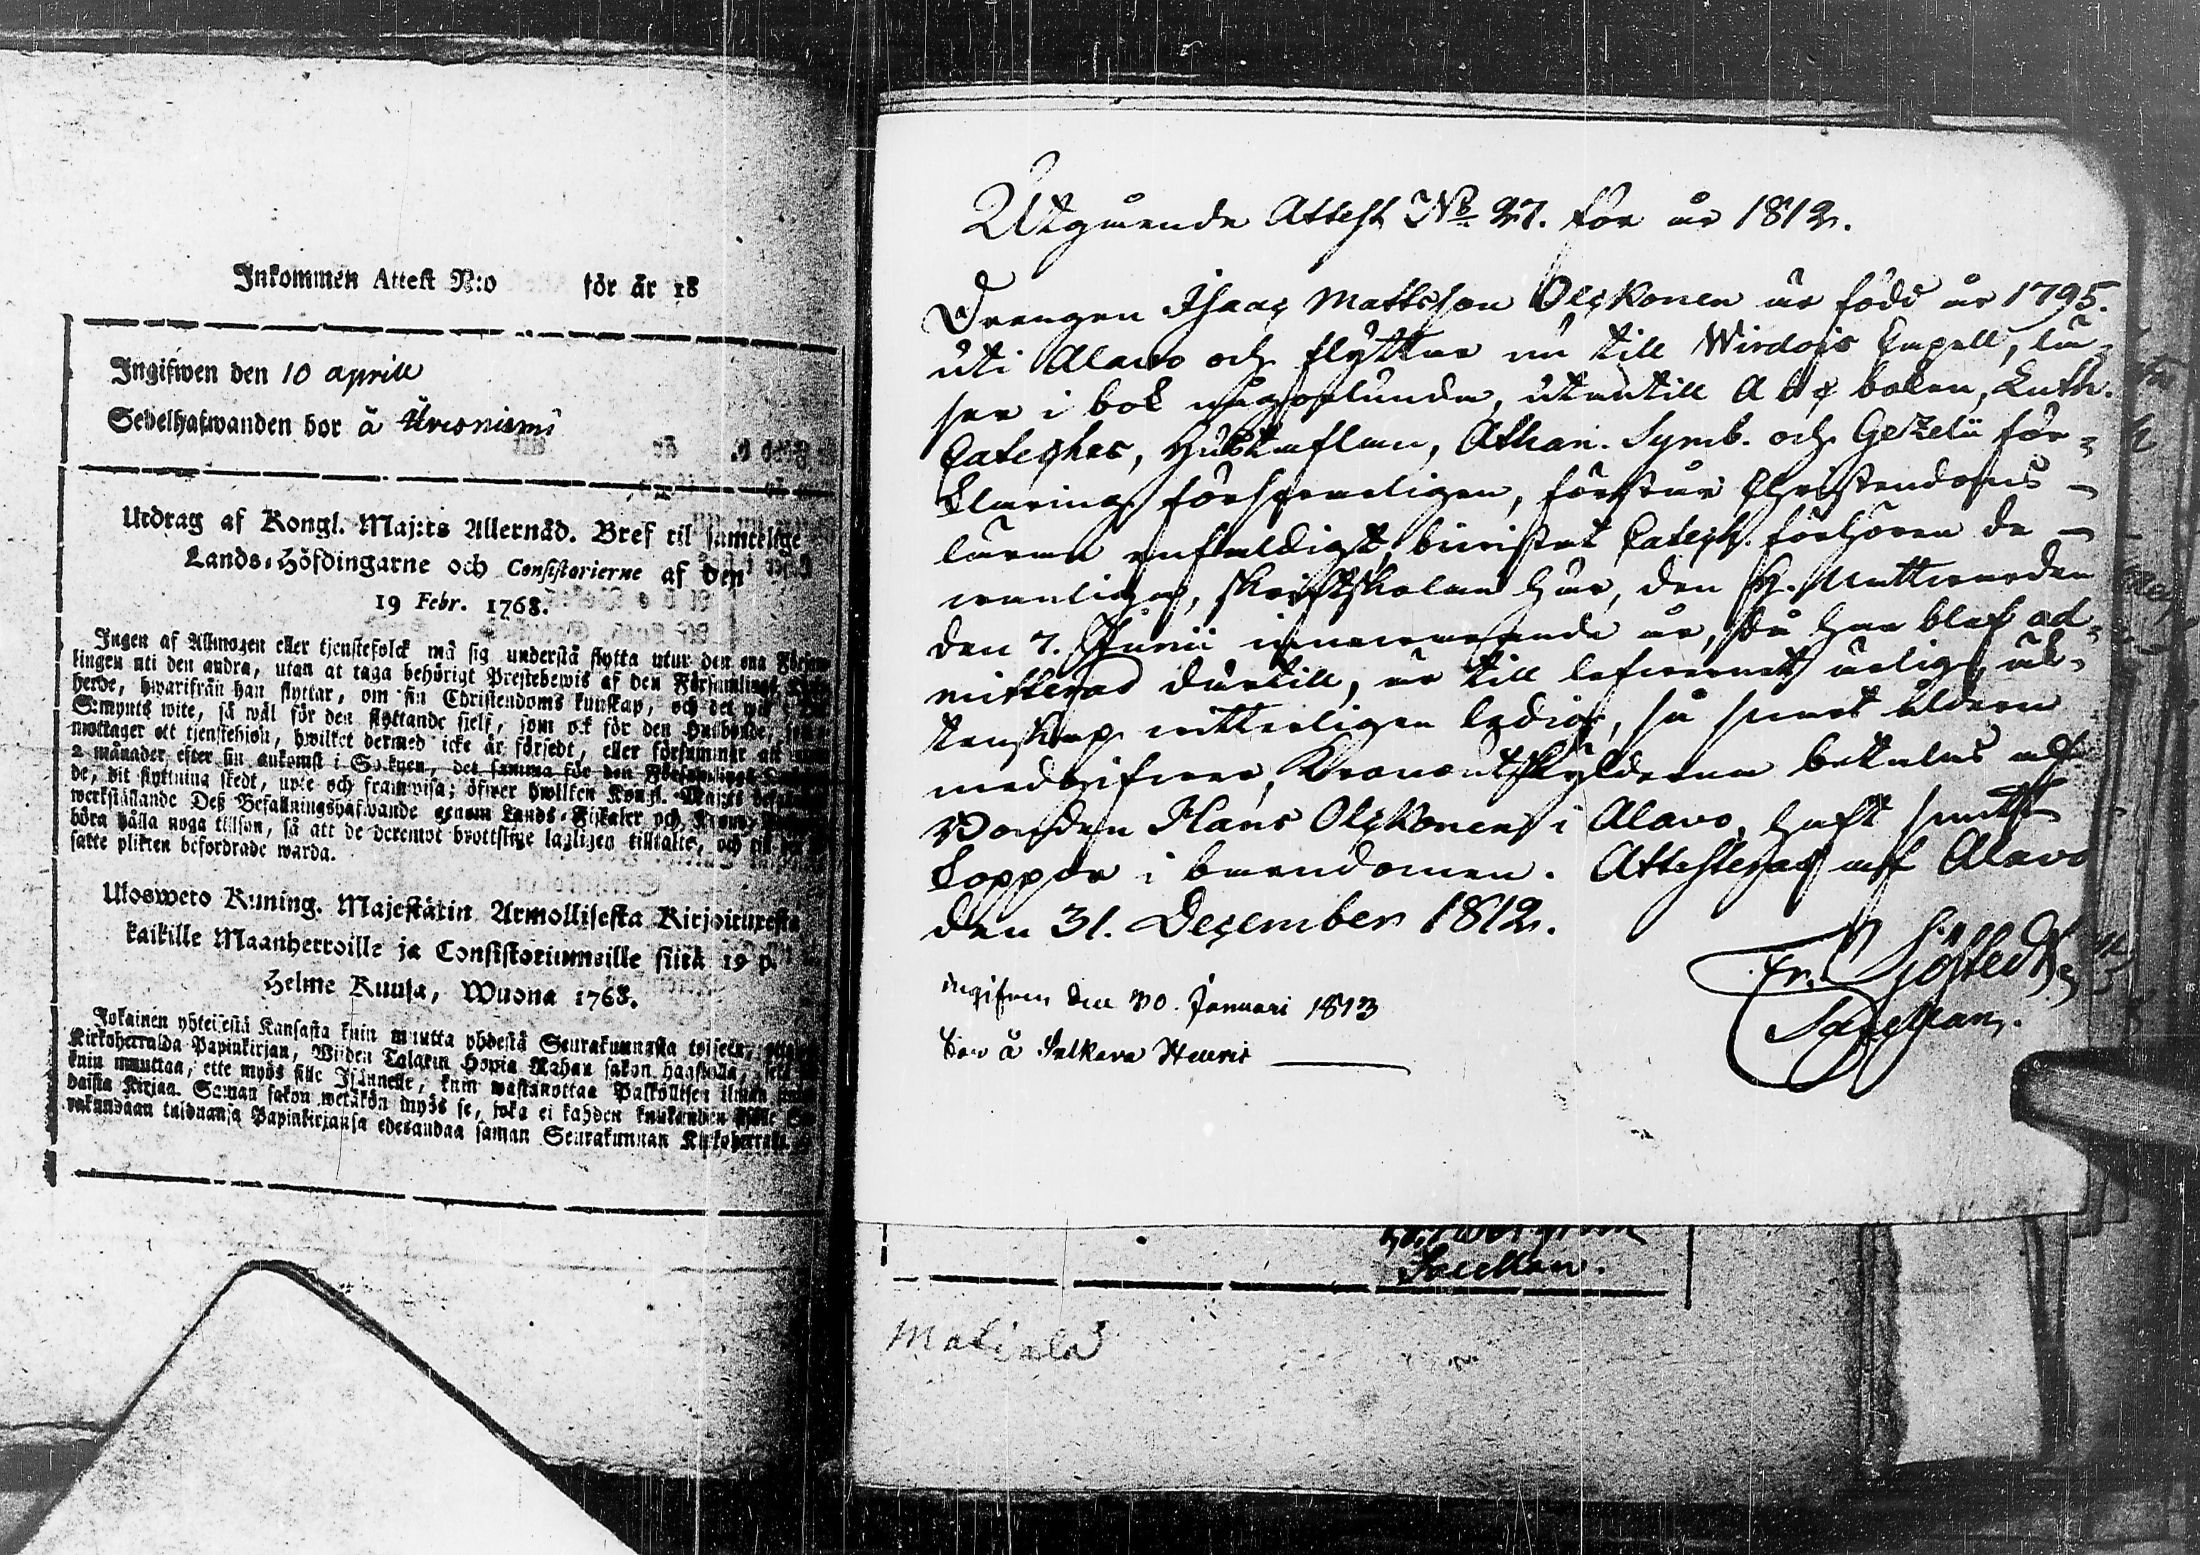 Inkommen Attest N:o för år 18
Ingifwen den 10 aprill
Sedelhafwanden bor å
Utdrag af Kongl. Maj:ts Allernåd. Bref til samtelige
Lands-Höfdingarne och Consistorierne af den
19 Febr. 1768.
Ingen af Allmogen eller tjenstefolck må sig understå flytta utur den ena Försam
lingen uti den andra, utan at taga behörigt Prestebewis af den Församlings
herde, hwarifrån han flyttar, om sin Christendoms kunskap, och det wid
S:mynts wite, så wäl för den flyttande sjelf, som ock för den Husbonde,
mottager ett tjenstehion, hwilket dermed icke är försedt, eller försummar att
2 månader efter sin ankomst i Socknen, det samma för den Församlings
de, dit flyttning skedt, upte och framwisa; öfwer hwilken Kongl. Maj:ts
werkställande Deß Befallningshafwande genom Lands-Fiskaler och
böra hålla noga tillsyn, så att de deremot brottslige lagligen tilltalte, och til
satte plikten befordrade warda.
Ulosweto Kuning. Majestätin Armollisesta Kirjoituxesta
kaikille Maanherroille ja Consistoriumeille siitä 19 p.
Helme Kuusa, Wuona 1768.
Jokainen yhteisestä Kansasta kuin muutta yhdestä Seurakunnasta toiseen,
Kirkoherralda Papinkirjan, Wiiden Talarin Hopia Rahan sakon haastolla,
kuin muuttaa, ette myös sille Isännelle, kuin wastanottaa Palkollisen ilman
daista Kirjaa. Saman sakon wetäkön myös se, joka ei kahden kuukauden
rakundaan tulduansa Papinkirjansa edesandaa saman Seurakunnan Kirkoherralle
Utgående Attest No. 27. för år 1812.
Drengen Isaac Mattsson Olckonen är född år 1795.
uti Alavo och flyttar nu till Wirdois Capell, lä-
ser i bok någorlunda, utantill A b c boken, Luth.
Cateches, Hustaflan, Athan. Symb. och Gezelii för-
klaring försvarligen, förstår Christendoms-
läran enfaldigt, bivistat Catech. förhören de
vanliga, skriftskolan här, den H. Nattvarden
den 7. Junii innevarande år, då han blef ad-
mitterad därtill, är till lefvernet ärlig, äk-
tenskap vitterligen ledig, så snart åldern
medgifver, Kronoutskylderna betalas af
Bonden Hans Olckonen i Alavo, haft
Koppor i barndomen. Attesteras af Alavo
den 31. December 1812.
Fr. Sjöstedt
Sacellan.
ingifven den 30. Januari 1813
bor å
Sacellan.